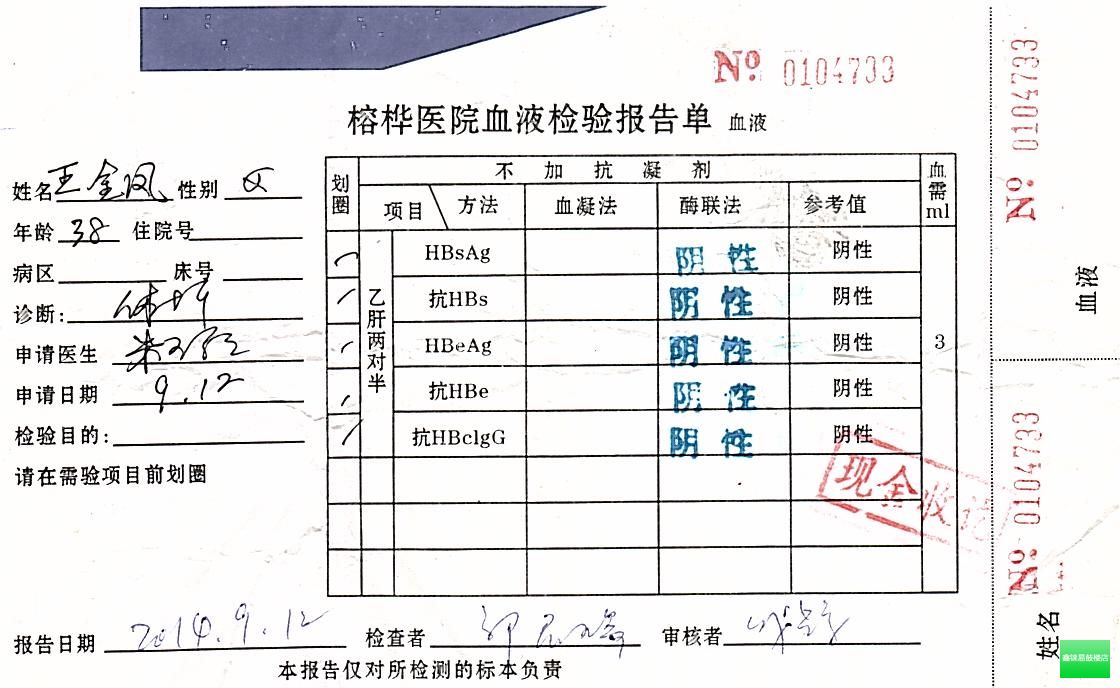 Nº 0104733
榕桦医院血液检验报告单 血液
姓名 王金凤 性别 女
年龄 38 住院号
病区 床号
诊断: 体检
申请医生
申请日期 9.12
检验目的:
请在需验项目前划圈
划圈 不加抗凝剂 血需ml
项目 方法 血凝法 酶联法 参考值
乙肝两对半
HBsAg 阴性 阴性
抗HBs 阴性 阴性
HBeAg 阴性 阴性 3
抗HBe 阴性 阴性
抗HBclgG 阴性 阴性
现金收讫
报告日期 2014.9.12 检查者 审核者
本报告仅对所检测的标本负责
Nº 0104733
血液
Nº 0104733
姓名
鑫铼易鼓楼店